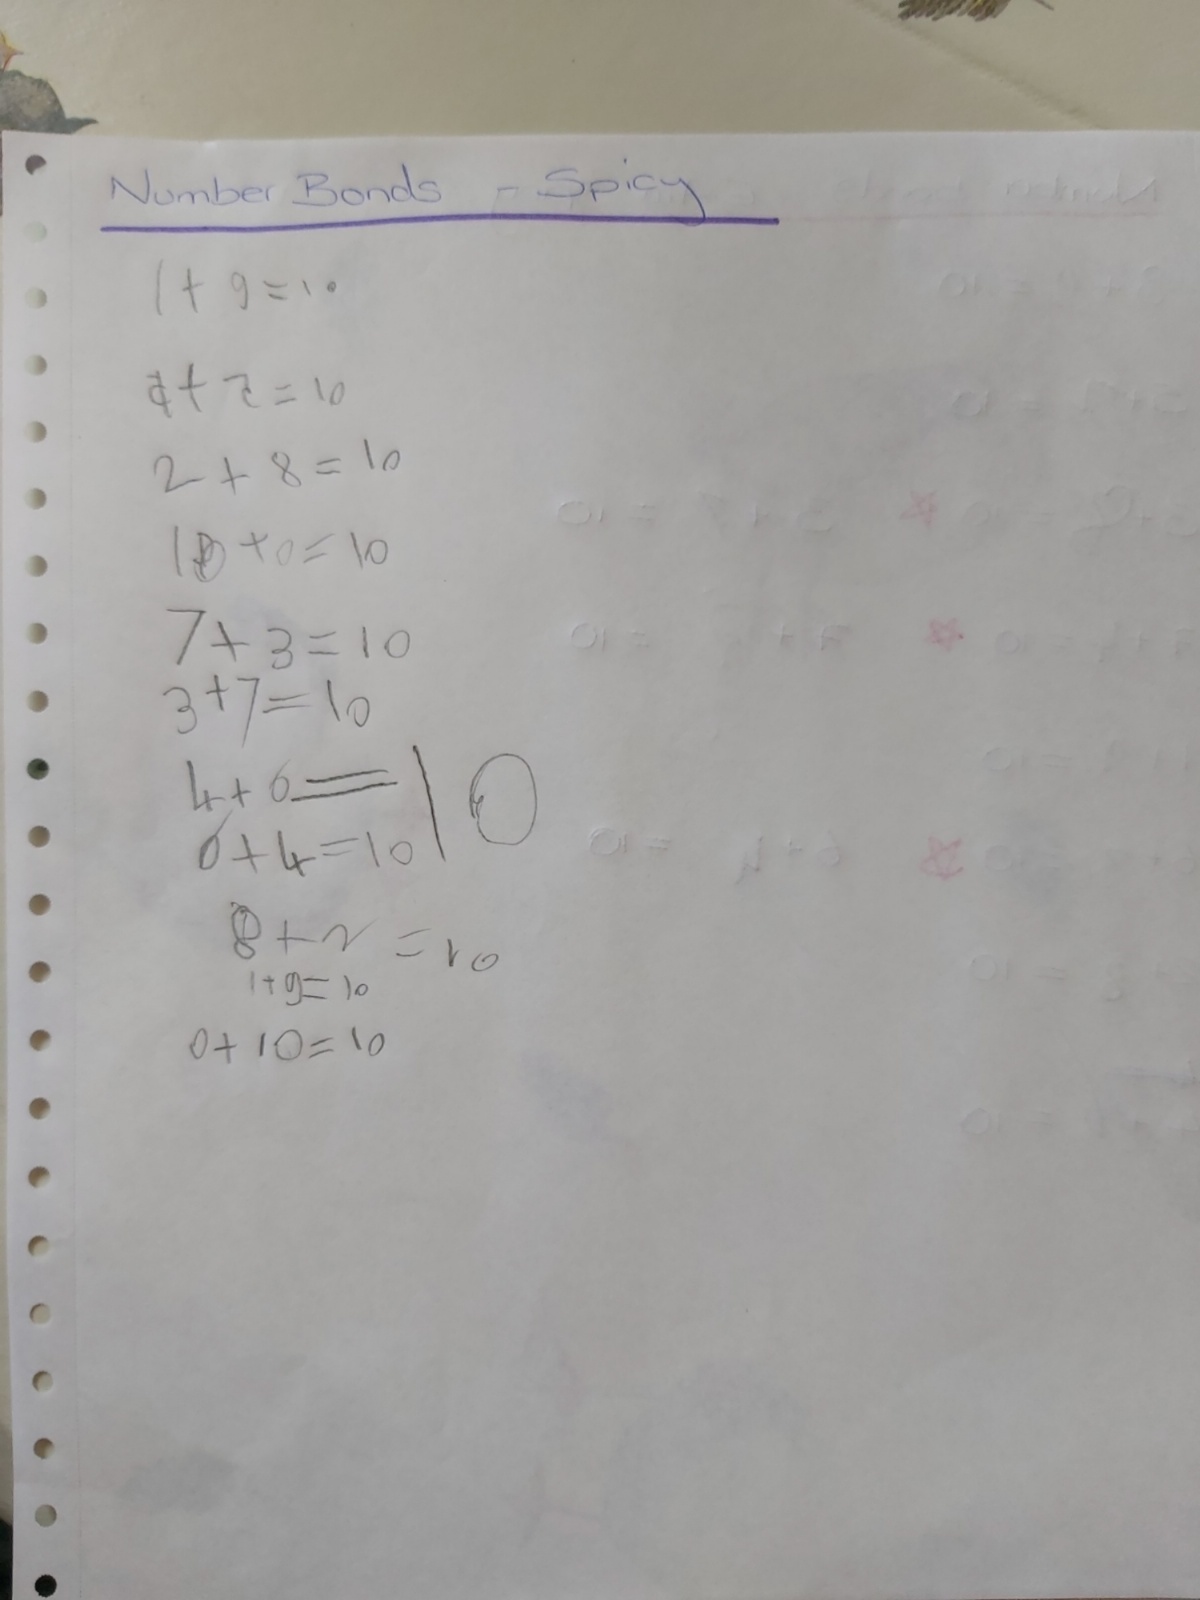 Number Bonds - Spicy
1 + 9 = 10
5 + 5 = 10
2 + 8 = 10
10 + 0 = 10
7 + 3 = 10
3 + 7 = 10
4 + 6 = 10
6 + 4 = 10
8 + 2 = 10
1 + 9 = 10
0 + 10 = 10